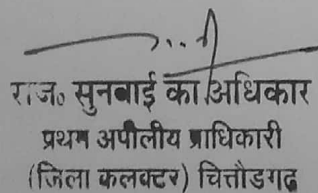 राज० सुनवाई का अधिकार
प्रथम अपीलीय प्राधिकारी
(जिला कलक्टर) चित्तौडगढ